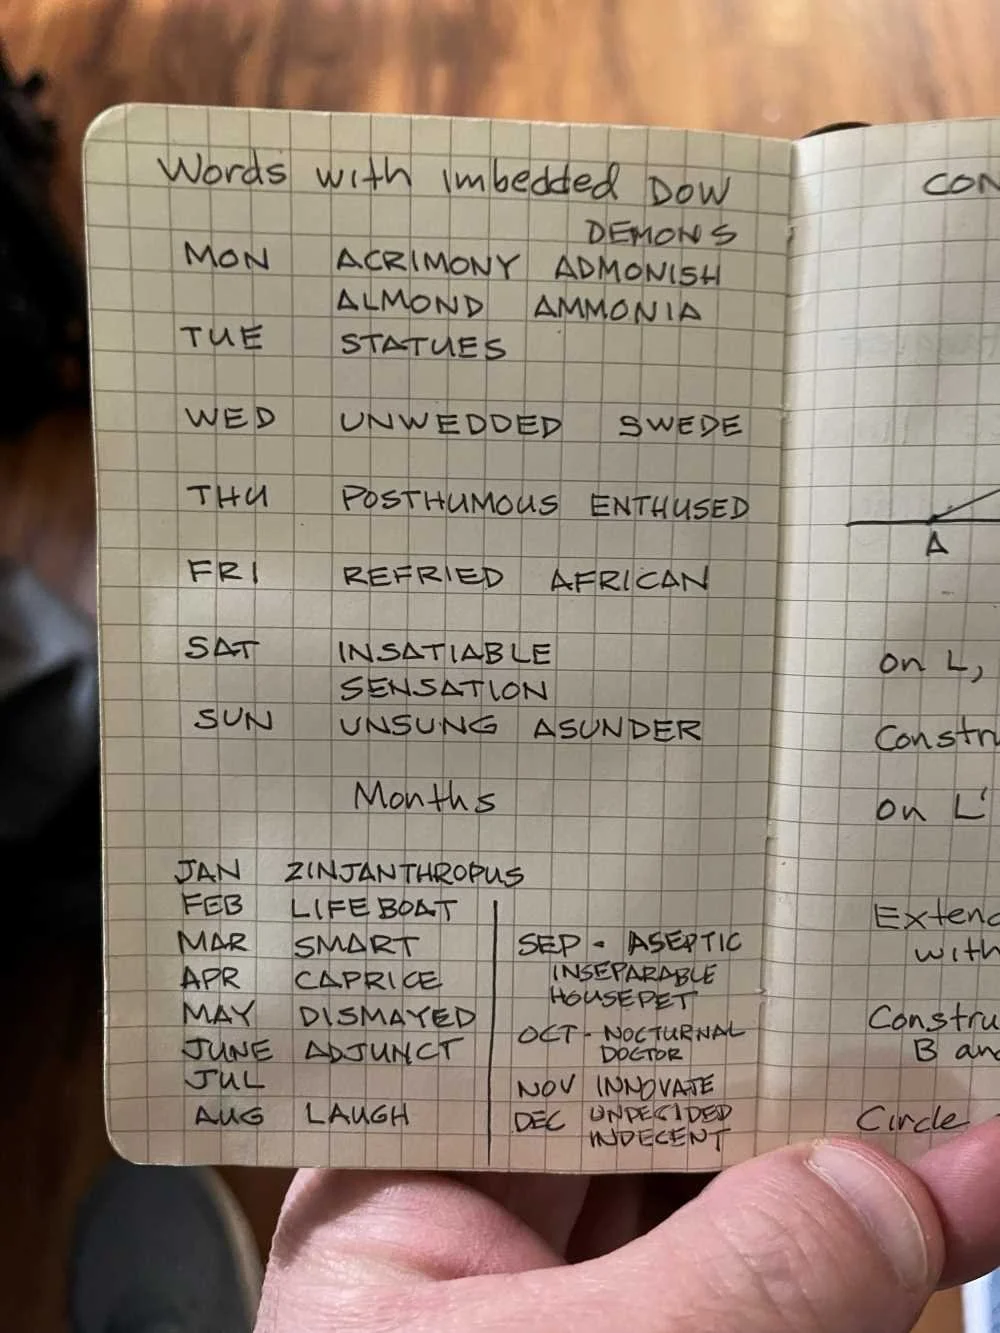 Words with imbedded DOW
DEMONS
MON ACRIMONY ADMONISH
ALMOND AMMONIA
TUE STATUES
WED UNWEDDED SWEDE
THU POSTHUMOUS ENTHUSED
FRI REFRIED AFRICAN
SAT INSATIABLE
SENSATION
SUN UNSUNG ASUNDER
Months
JAN ZINJANTHROPUS
FEB LIFEBOAT
MAR SMART
APR CAPRICE
MAY DISMAYED
JUNE ADJUNCT
JUL
AUG LAUGH
SEP - ASEPTIC
INSEPARABLE
HOUSEPET
OCT - NOCTURNAL
DOCTOR
NOV INNOVATE
DEC UNDECIDED
INDECENT
CON
A
on L,
Constru
on L'
Extend
with
Constru
B and
Circle